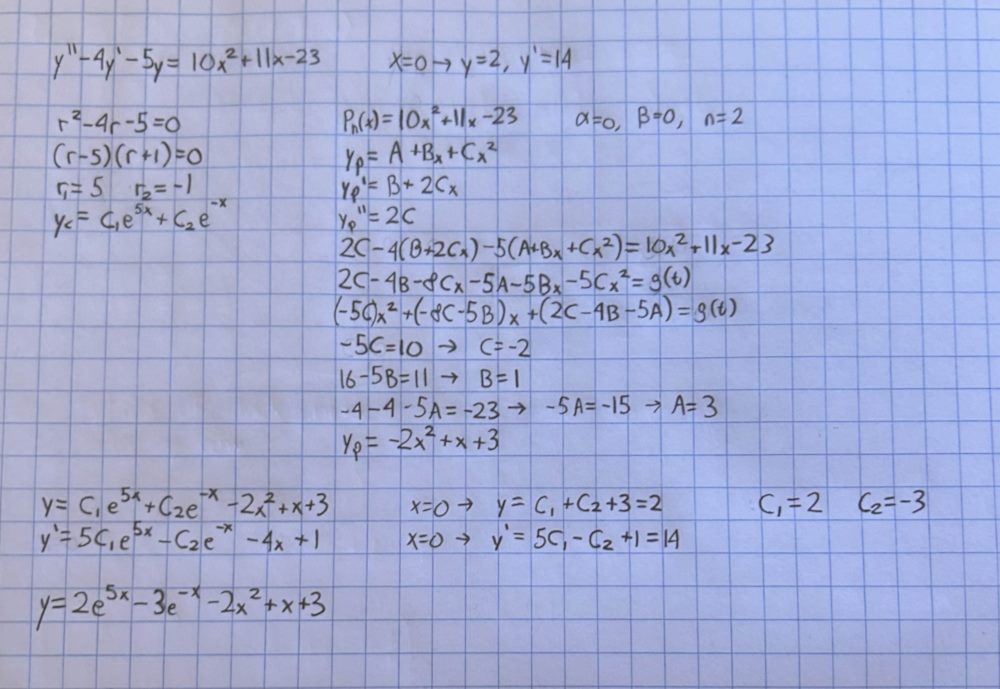 y''-4y'-5y = 10x²+11x-23    x=0 → y=2, y'=14
r²-4r-5=0
(r-5)(r+1)=0
r₁=5  r₂=-1
y_c= C₁e^{5x}+C₂e^{-x}
Pₙ(x)=10x²+11x-23    α=0, β=0, n=2
y_p= A+Bx+Cx²
y_p'= B+2Cx
y_p''= 2C
2C-4(B+2Cx)-5(A+Bx+Cx²)=10x²+11x-23
2C-4B-8Cx-5A-5Bx-5Cx²=g(t)
(-5C)x²+(-8C-5B)x+(2C-4B-5A)=g(t)
-5C=10 → C=-2
16-5B=11 → B=1
-4-4-5A=-23 → -5A=-15 → A=3
y_p= -2x²+x+3
y= C₁e^{5x}+C₂e^{-x}-2x²+x+3    x=0 → y= C₁+C₂+3=2    C₁=2  C₂=-3
y'=5C₁e^{5x}-C₂e^{-x}-4x+1    x=0 → y'= 5C₁-C₂+1=14
y=2e^{5x}-3e^{-x}-2x²+x+3